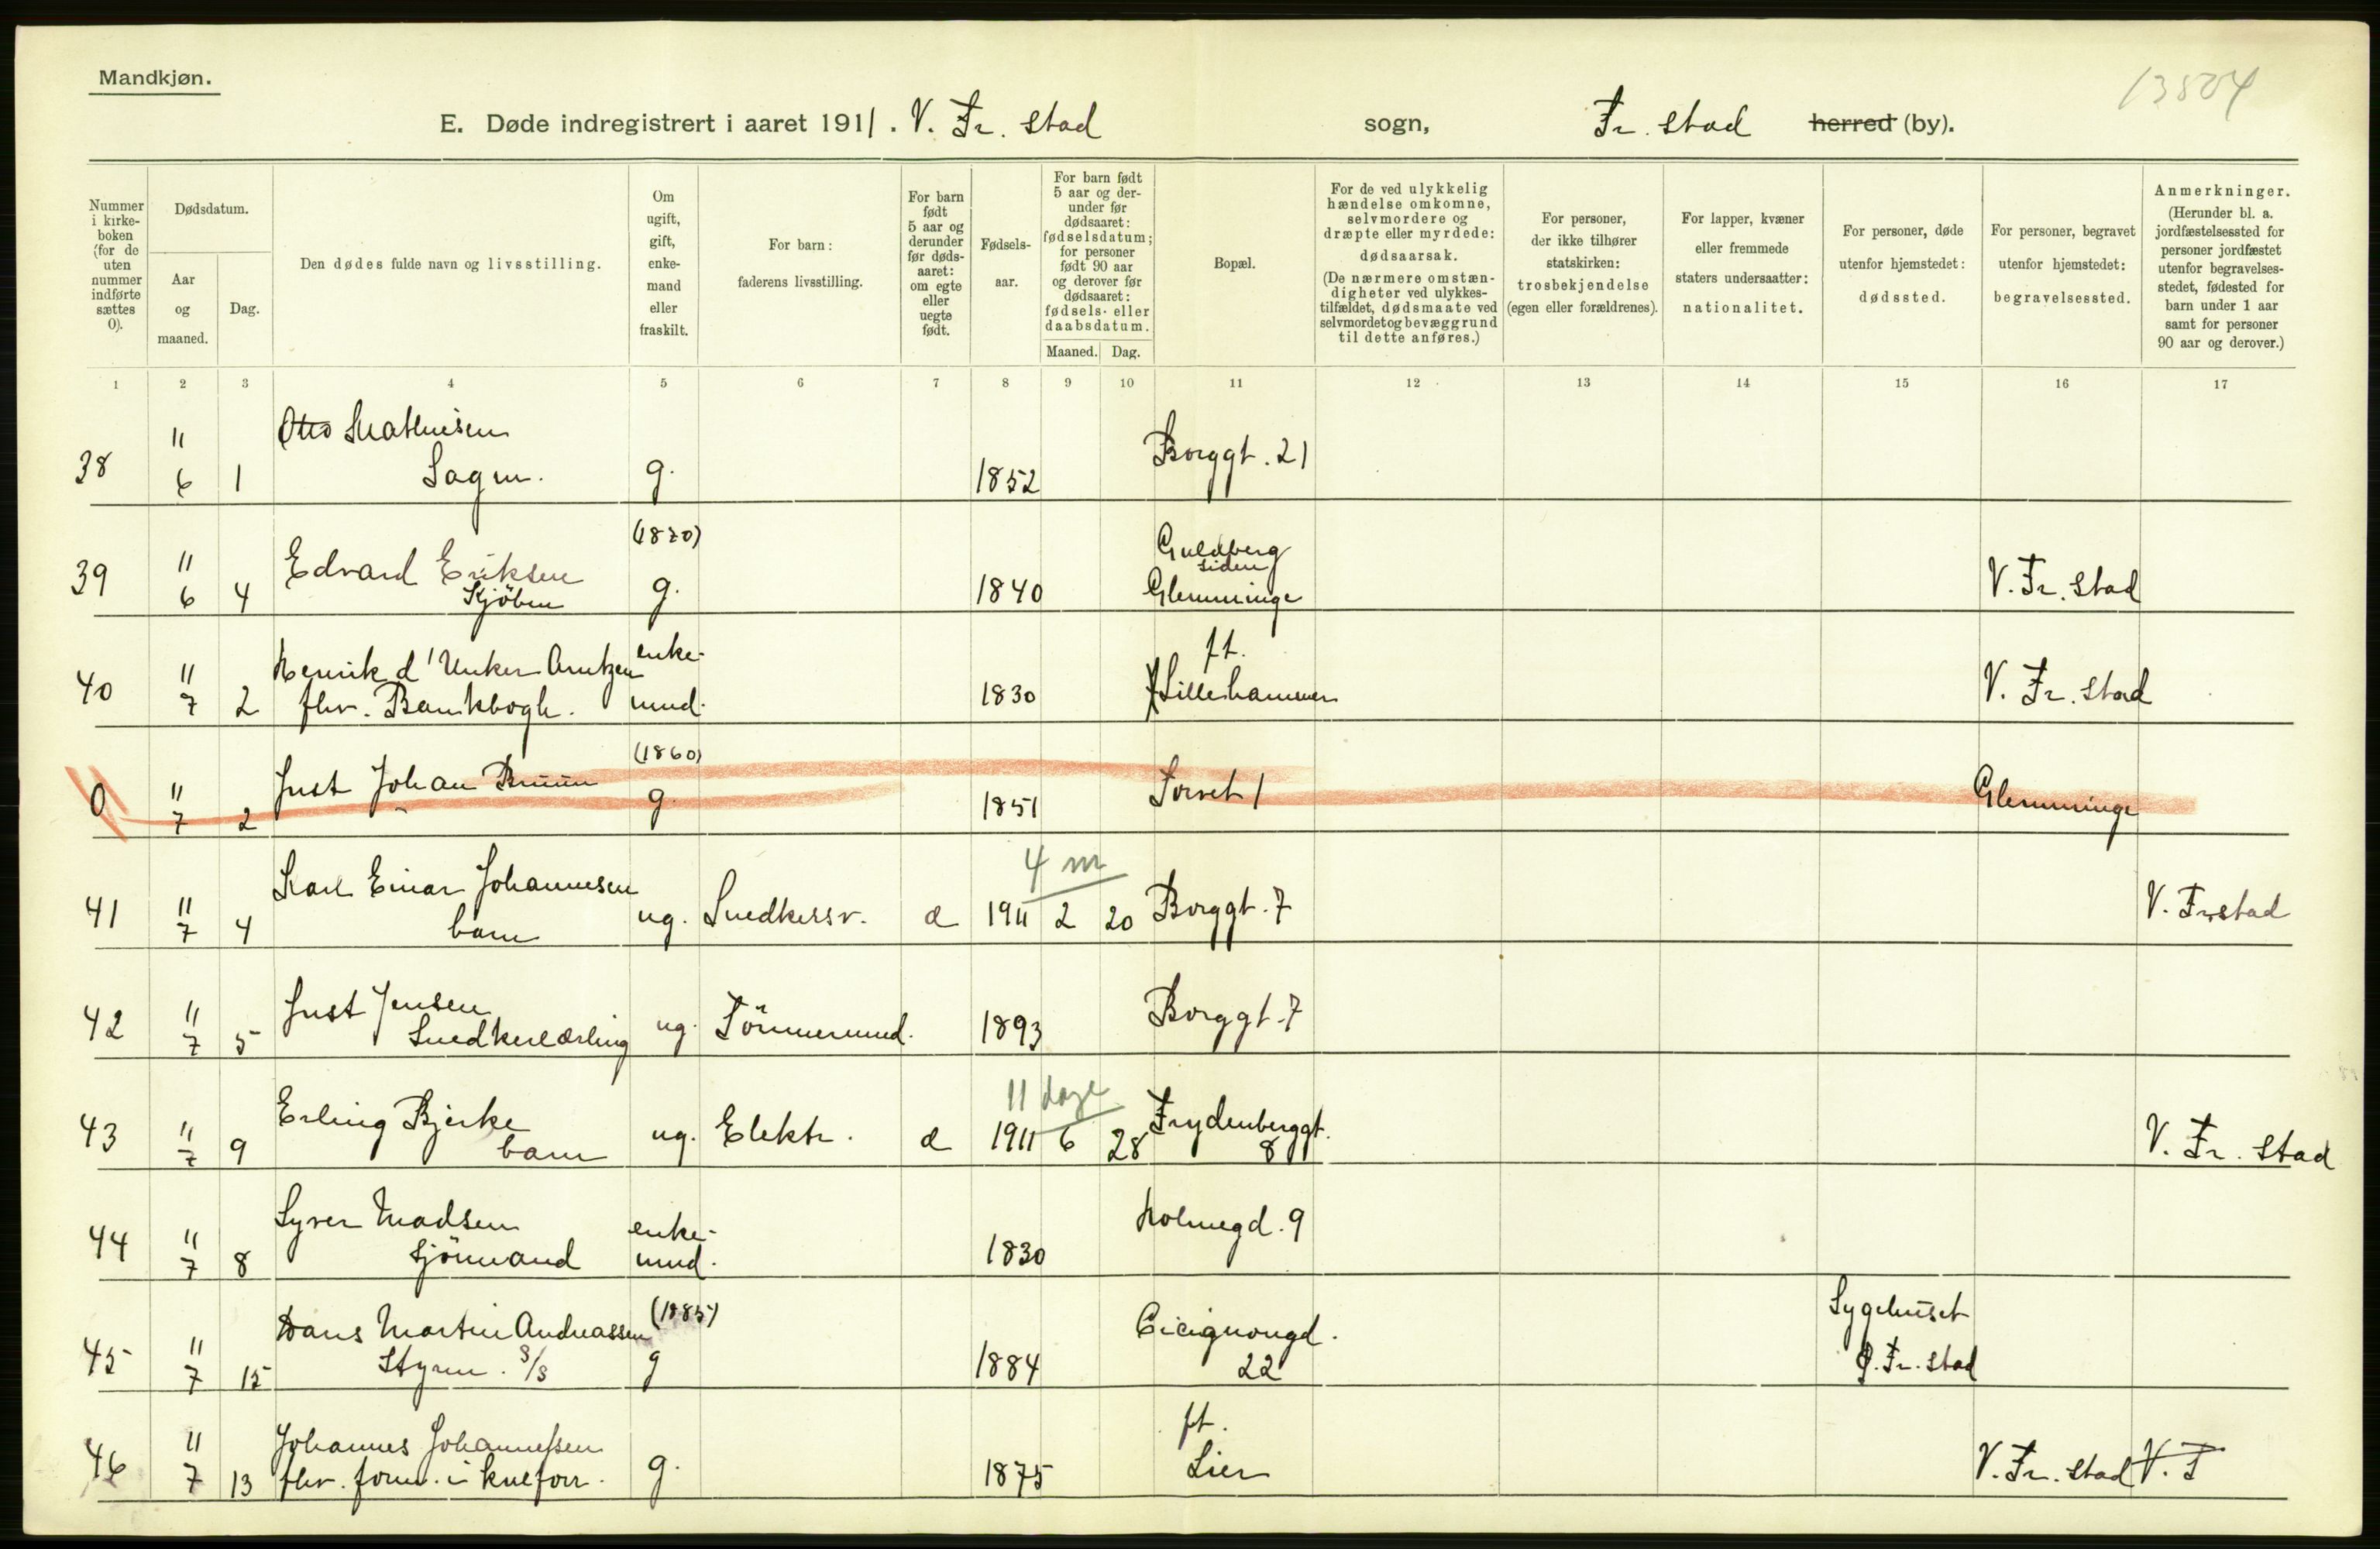 Mandkjøn.
13504
E. Døde indregistrert i aaret 1911. V. Fr. stad sogn, Fr. stad herred (by).
Nummer i kirke-boken (for de uten nummer indførte sættes 0).
Dødsdatum.
Aar og maaned.
Dag.
Den dødes fulde navn og livsstilling.
Om ugift, gift, enke-mand eller fraskilt.
For barn: faderens livsstilling.
For barn født 5 aar og derunder før døds-aaret: om egte eller uegte født.
Fødsels-aar.
For barn født 5 aar og der-under før dødsaaret: fødselsdatum; for personer født 90 aar og derover før dødsaaret: fødsels- eller daabsdatum.
Maaned. Dag.
Bopæl.
For de ved ulykkelig hændelse omkomne, selvmordere og dræpte eller myrdede: dødsaarsak. (De nærmere omstæn-digheter ved ulykkes-tilfældet, dødsmaate ved selvmord et og bevæggrund til dette anføres.)
For personer, der ikke tilhører statskirken: trosbekjendelse (egen eller forældrenes).
For lapper, kvæner eller fremmede staters undersaatter: nationalitet.
For personer, døde utenfor hjemstedet: dødssted.
For personer, begravet utenfor hjemstedet: begravelsessted.
Anmerkninger. (Herunder bl. a. jordfæstelsessted for personer jordfæstet utenfor begravelses-stedet, fødested for barn under 1 aar samt for personer 90 aar og derover.)
1 2 3 4 5 6 7 8 9 10 11 12 13 14 15 16 17
38 11 6 1 Otto Mathisen Sagm. g. 1852 Borggt. 21
39 11 6 4 Edvard Eriksen Kjöbm g. (1870) 1840 Guldberg siden Glemminge V. Fr. stad
40 11 7 2 Henrik d'Unker Arntzen fhv. Bankbogh. enke-mnd. 1830 ft. Lillehammer V. Fr. stad
0 11 7 2 Just Johan Bruun (1860) g. 1851 Torvet 1 Glemminge
4 m
41 11 7 4 Karl Einar Johannesen barn ug. Snedkersv. æ 1911 2 20 Borggt. 7 V. Frstad
42 11 7 5 Just Jensen Snedkerlærling ug. Tömmermnd. 1893 Borggt. 7
11 dage
43 11 7 9 Erling Bjerke barn ug. Elektr. æ 1911 6 28 Frydenberggt. 8 V. Fr. stad
44 11 7 8 Syver Madsen sjömand enke-mnd. 1830 Holmegd. 9
45 11 7 15 Hans Martin Andreassen Styrm. S/S (1885) g 1884 Cicignongd. 22 Sygehuset Ø. Fr. stad
46 11 7 13 Johannes Johannessen fhv. form. i kulforr. g. 1875 ft. Lier V. Fr. stad V. F